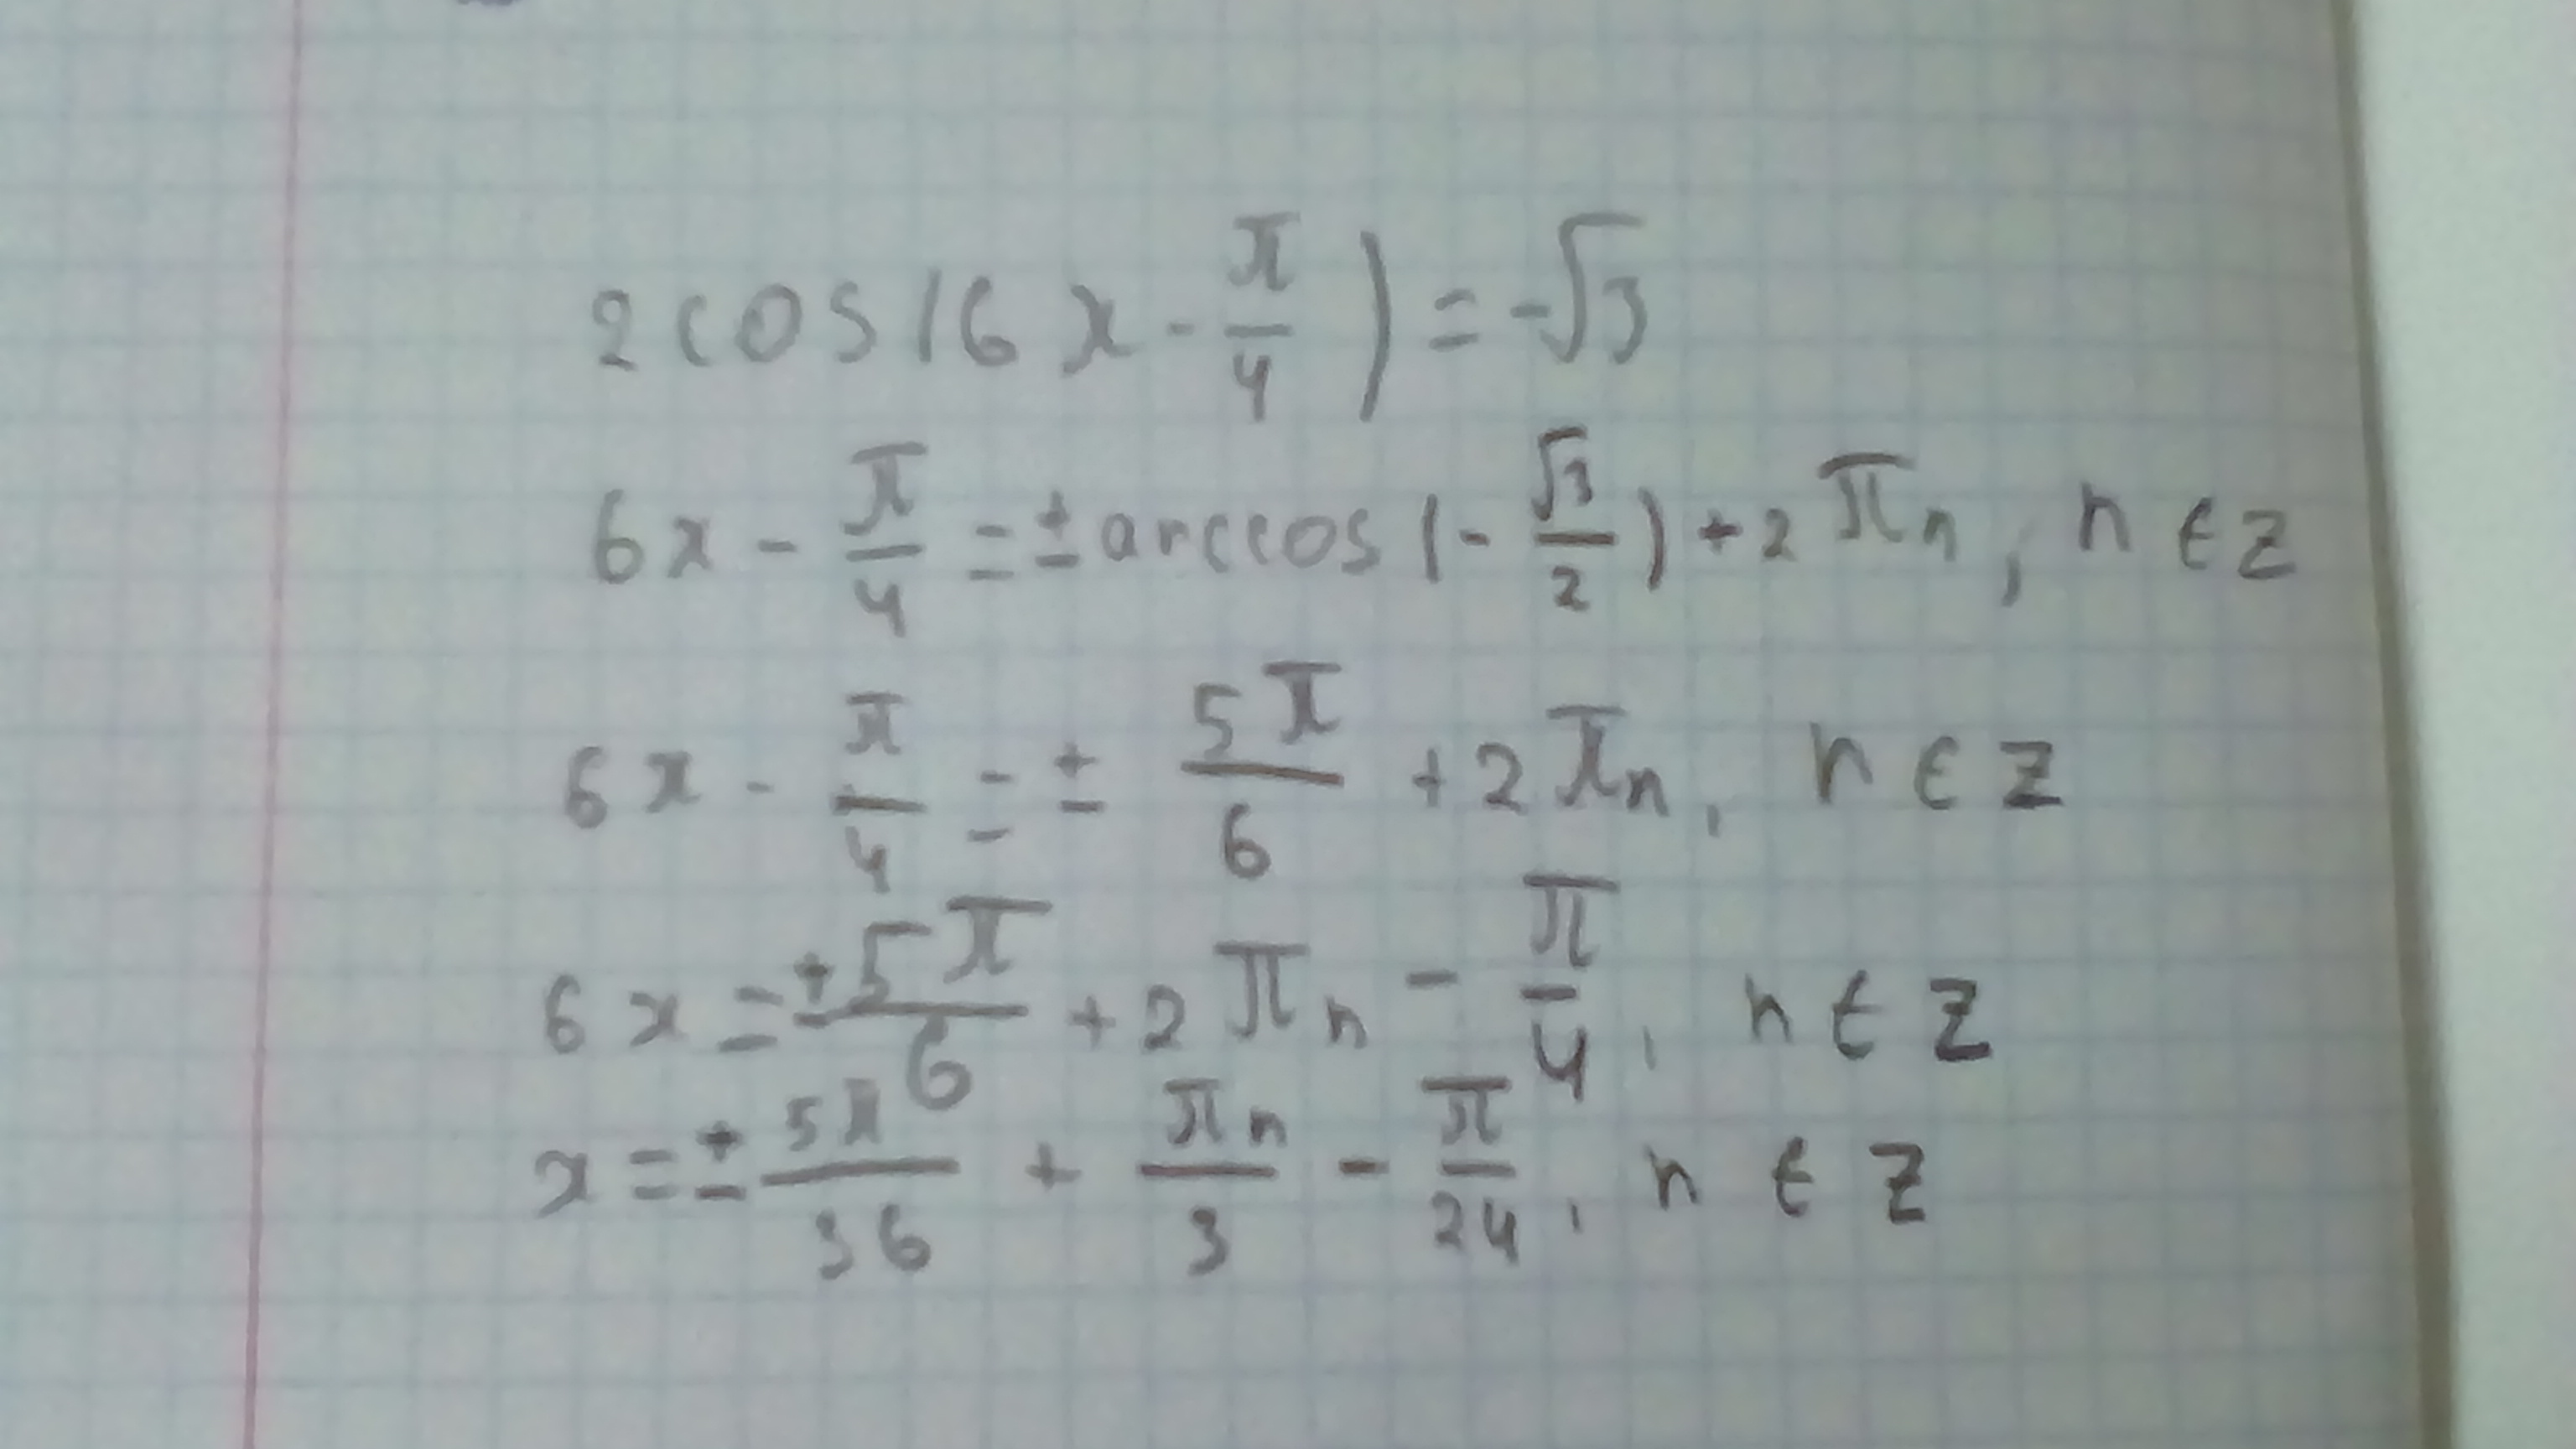 2cos(6x - π/4) = -√3
6x - π/4 = ± arccos(-√3/2) + 2πn, n ∈ Z
6x - π/4 = ± 5π/6 + 2πn, n ∈ Z
6x = ± 5π/6 + 2πn - π/4, n ∈ Z
x = ± 5π/36 + πn/3 - π/24, n ∈ Z